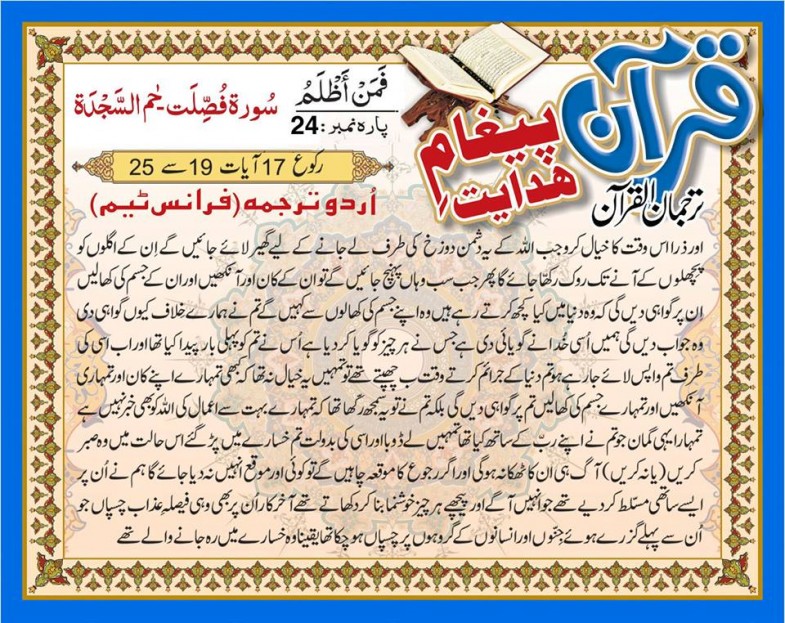 قرآن
پیغامِ
ھدایت
ترجمان القرآن
فَمَنْ أَظْلَمُ
پارہ نمبر: 24
سُورۃ فُصِّلَت۔حٰم السَّجْدَة
رکوع 17 آیات 19 سے 25
اُردو ترجمہ (فرانس ٹیم)
اور ذرا اس وقت کا خیال کرو جب اللہ کے یہ دشمن دوزخ کی طرف لے جانے کے لیے گھیر لائے جائیں گے اِن کے اگلوں کو
پچھلوں کے آنے تک روک رکھا جائے گا پھر جب سب وہاں پہنچ جائیں گے تو ان کے کان اور آنکھیں اور ان کے جسم کی کھالیں
اِن پر گواہی دیں گی کہ وہ دنیا میں کیا کچھ کرتے رہے ہیں وہ اپنے جسم کی کھالوں سے کہیں گے تم نے ہمارے خلاف کیوں گواہی دی
وہ جواب دیں گی ہمیں اُسی خدا نے گویائی دی ہے جس نے ہر چیز کو گویا کر دیا ہے اُس نے تم کو پہلی بار پیدا کیا تھا اور اب اسی کی
طرف تم واپس لائے جا رہے ہو تم دنیا کے جرائم کرتے وقت جب چھپتے تھے تو تمہیں یہ خیال نہ تھا کہ کبھی تمہارے اپنے کان اور تمہاری
آنکھیں اور تمہارے جسم کی کھالیں تم پر گواہی دیں گی بلکہ تم نے تو یہ سمجھ رکھا تھا کہ تمہارے بہت سے اعمال کی اللہ کو بھی خبر نہیں ہے
تمہارا یہی گمان جو تم نے اپنے ربّ کے ساتھ کیا تھا تمہیں لے ڈوبا اور اسی کی بدولت تم خسارے میں پڑ گئے اس حالت میں وہ صبر
کریں (یا نہ کریں) آگ ہی ان کا ٹھکانہ ہوگی اور اگر رجوع کا موقعہ چاہیں گے تو کوئی اور موقع انہیں نہ دیا جائے گا ہم نے اُن پر
ایسے ساتھی مسلط کر دیے تھے جو انہیں آگے اور پیچھے ہر چیز خوشنما بنا کر دکھاتے تھے آخر کار اُن پر بھی وہی فیصلہ عذاب چسپاں جو
اُن سے پہلے گزرے ہوئے جِنّوں اور انسانوں کے گروہوں پر چسپاں ہو چکا تھا یقینا وہ خسارے میں رہ جانے والے تھے